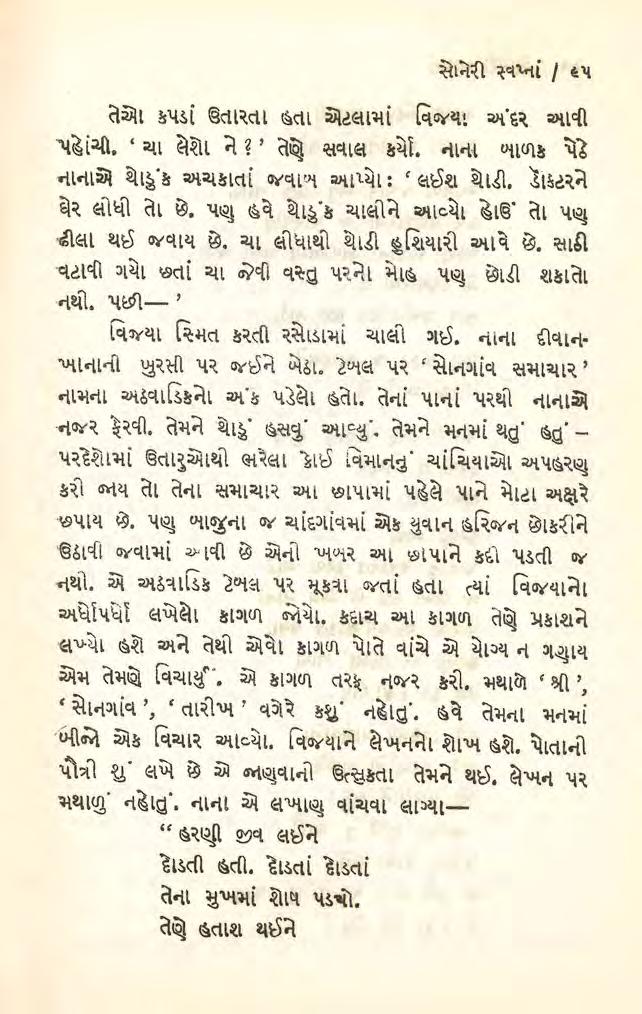 સોનેરી સ્વપ્નાં / ૯૫
તેઓ કપડાં ઉતારતા હતા એટલામાં વિજયા અંદર આવી
પહોંચી. ‘ ચા લેશો ને ? ’ તેણે સવાલ કર્યો. નાના બાળક પેઠે
નાનાએ થોડુંક અચકાતાં જવાબ આપ્યો : ‘ લઈશ થોડી. ડૉક્ટરને
ઘેર લીધી તો છે. પણ હવે થોડુંક ચાલીને આવ્યો હોઉં તો પણ
ઢીલા થઈ જવાય છે. ચા લીધાથી થોડી હુશિયારી આવે છે. સાઠી
વટાવી ગયો છતાં ચા જેવી વસ્તુ પરનો મોહ પણ છોડી શકાતો
નથી. પછી— ’
વિજયા સ્મિત કરતી રસોડામાં ચાલી ગઈ. નાના દીવાન-
ખાનાની ખુરસી પર જઈને બેઠા. ટેબલ પર ‘ સોનગાંવ સમાચાર ’
નામના અઠવાડિકનો અંક પડેલો હતો. તેનાં પાનાં પરથી નાનાએ
નજર ફેરવી. તેમને થોડું હસવું આવ્યું. તેમને મનમાં થતું હતું –
પરદેશોમાં ઉતારુઓથી ભરેલા કોઈ વિમાનનું ચાંચિયાઓ અપહરણ
કરી જાય તો તેના સમાચાર આ છાપામાં પહેલે પાને મોટા અક્ષરે
છપાય છે. પણ બાજુના જ ચાંદગાંવમાં એક યુવાન હરિજન છોકરીને
ઉઠાવી જવામાં આવી છે એની ખબર આ છાપાને કદી પડતી જ
નથી. એ અઠવાડિક ટેબલ પર મૂકવા જતાં હતા ત્યાં વિજયાનો
અર્ધોપર્ધો લખેલો કાગળ જોયો. કદાચ આ કાગળ તેણે પ્રકાશને
લખ્યો હશે અને તેથી એવો કાગળ પોતે વાંચે એ યોગ્ય ન ગણાય
એમ તેમણે વિચાર્યું. એ કાગળ તરફ નજર કરી. મથાળે ‘ શ્રી ’,
‘ સોનગાંવ ’, ‘ તારીખ ’ વગેરે કશું નહોતું. હવે તેમના મનમાં
બીજો એક વિચાર આવ્યો. વિજયાને લેખનનો શોખ હશે. પોતાની
પૌત્રી શું લખે છે એ જાણવાની ઉત્સુકતા તેમને થઈ. લેખન પર
મથાળું નહોતું. નાના એ લખાણ વાંચવા લાગ્યા—
“ હરણી જીવ લઈને
દોડતી હતી. દોડતાં દોડતાં
તેના મુખમાં શોષ પડચો.
તેણે હતાશ થઈને